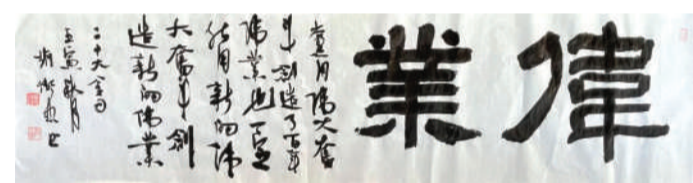 偉業
党用偉大奮
斗創造了百年
偉業也一定
能用新的偉
大奮斗創
造新的偉業
二十大金句
壬寅秋月
書